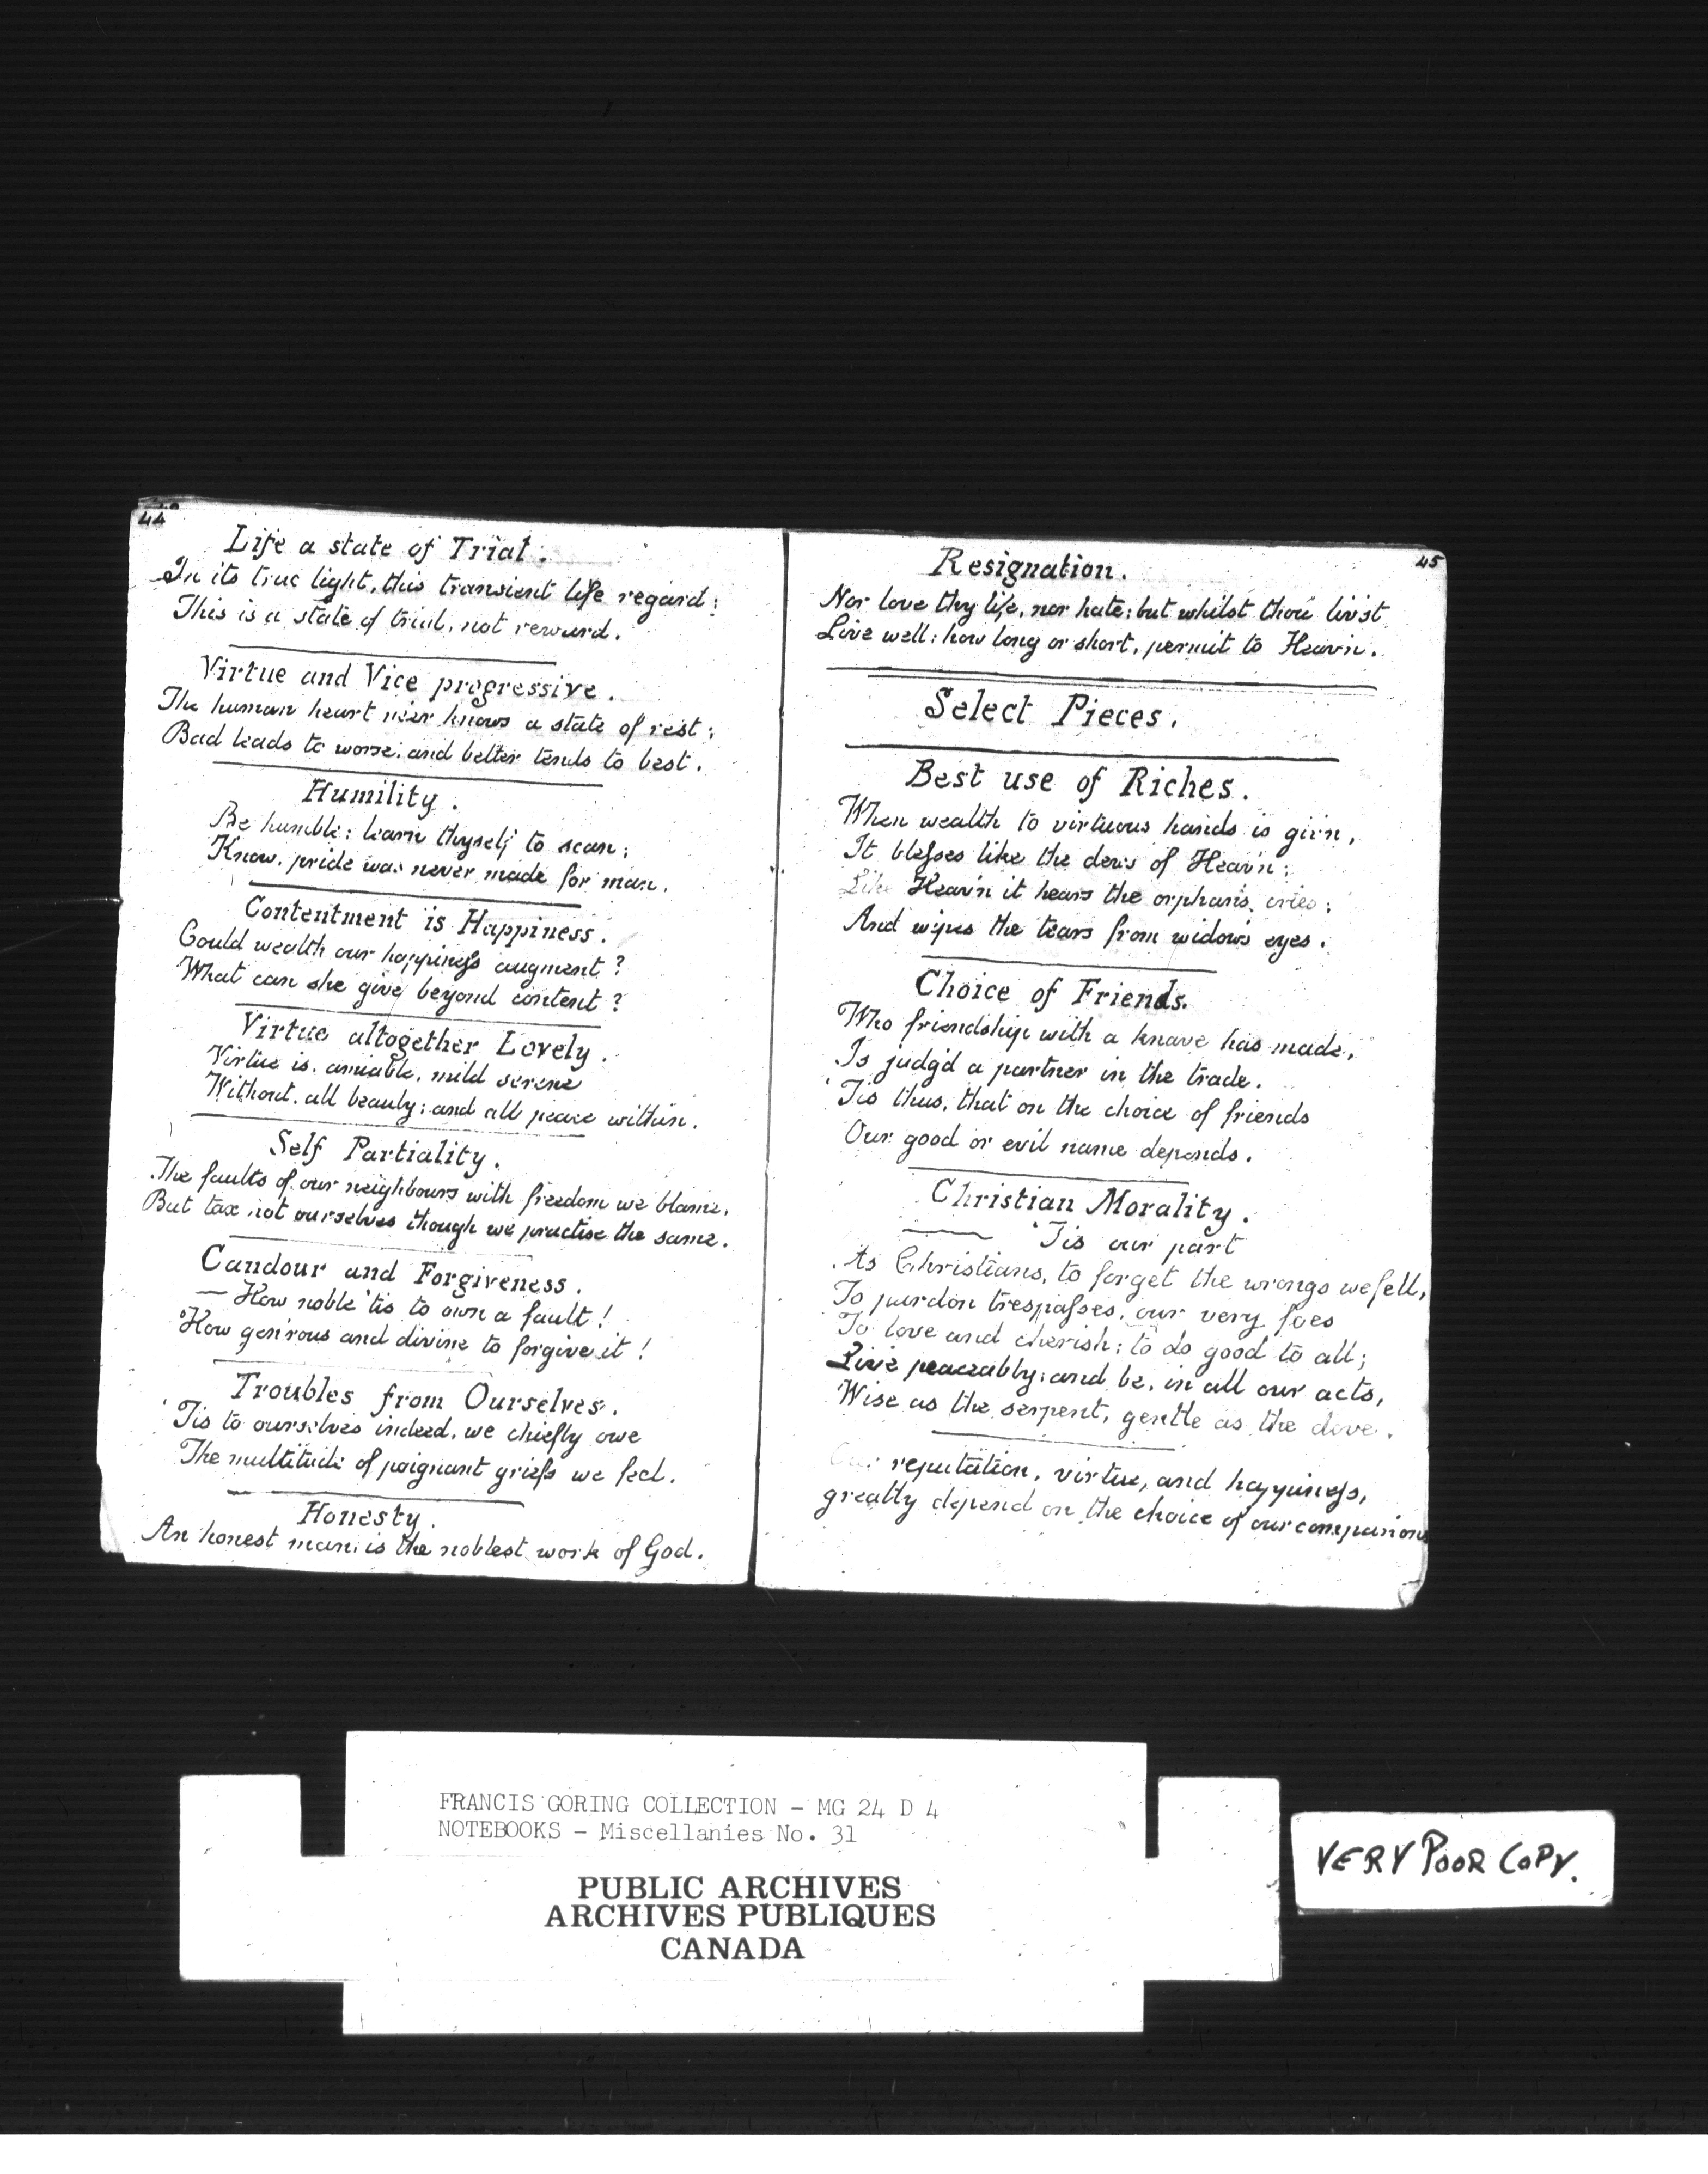 44
Life a state of Trial.
In its true light, this transient life regard:
This is a state of trial, not reward.
Virtue and Vice progressive.
The human heart ne'er knows a state of rest;
Bad leads to worse; and better tends to best.
Humility.
Be humble; learn thyself to scan;
Know, pride was never made for man.
Contentment is Happiness.
Could wealth our happineſs augment?
What can she give beyond content?
Virtue altogether Lovely.
Virtue is amiable, mild serene
Without, all beauty; and all peace within.
Self Partiality.
The faults of our neighbours with freedom we blame,
But tax not ourselves though we practise the same.
Candour and Forgiveness.
— How noble 'tis to own a fault!
How gen'rous and divine to forgive it!
Troubles from Ourselves.
'Tis to ourselves indeed, we chiefly owe
The multitude of poignant griefs we feel.
Honesty.
An honest man, is the noblest work of God.
45
Resignation.
Nor love thy life, nor hate; but whilst thou liv'st
Live well; how long or short, permit to Heav'n.
Select Pieces.
Best use of Riches.
When wealth to virtuous hands is giv'n,
It bleſses like the dews of Heav'n;
Like Heav'n it hears the orphan's cries;
And wipes the tears from widow's eyes.
Choice of Friends.
Who friendship with a knave has made,
Is judg'd a partner in the trade.
'Tis thus, that on the choice of friends
Our good or evil name depends.
Christian Morality.
— 'Tis our part
As Christians, to forget the wrongs we fell,
To pardon trespaſses, our very foes
To love and cherish; to do good to all;
Live peaceably; and be, in all our acts,
Wise as the serpent, gentle as the dove.
Our reputation, virtue, and happineſs,
greatly depend on the choice of our companions
FRANCIS GORING COLLECTION - MG 24 D 4
NOTEBOOKS - Miscellanies No. 31
PUBLIC ARCHIVES
ARCHIVES PUBLIQUES
CANADA
VERY POOR COPY.